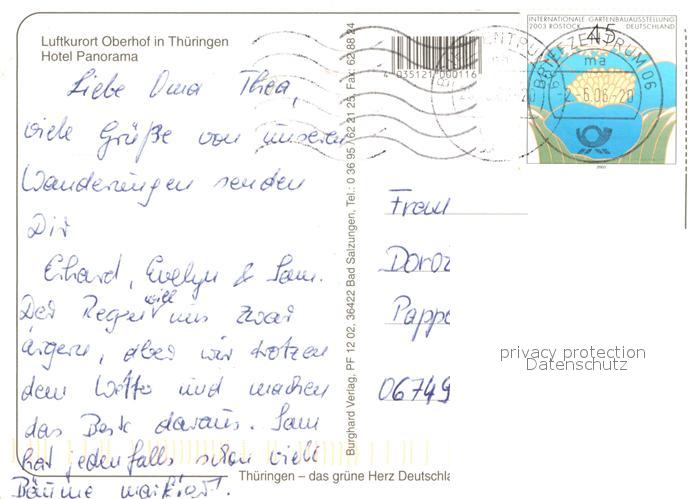 Luftkurort Oberhof in Thüringen
Hotel Panorama
Liebe Oma Thea,
viele Grüße von unseren
Wanderungen senden
Dir
Erhard, Evelyn & Sam.
Der Regen will uns zwar
ärgern, aber wir trotzen
dem Wetter und machen
das Beste daraus. Sam
hat jedenfalls schon viele
Bäume markiert.
Burghard Verlag, PF 12 02, 36422 Bad Salzungen, Tel.: 0 36 95 / 62 21 25, Fax: 62 88 24
4 035121 000116
INTERNATIONALE GARTENBAUAUSSTELLUNG
2003 ROSTOCK DEUTSCHLAND
45
BRIEFZENTRUM 06
ma
-2.-6.06-20
2003
Frau
Doro
Pappe
06749
privacy protection
Datenschutz
Thüringen – das grüne Herz Deutschla